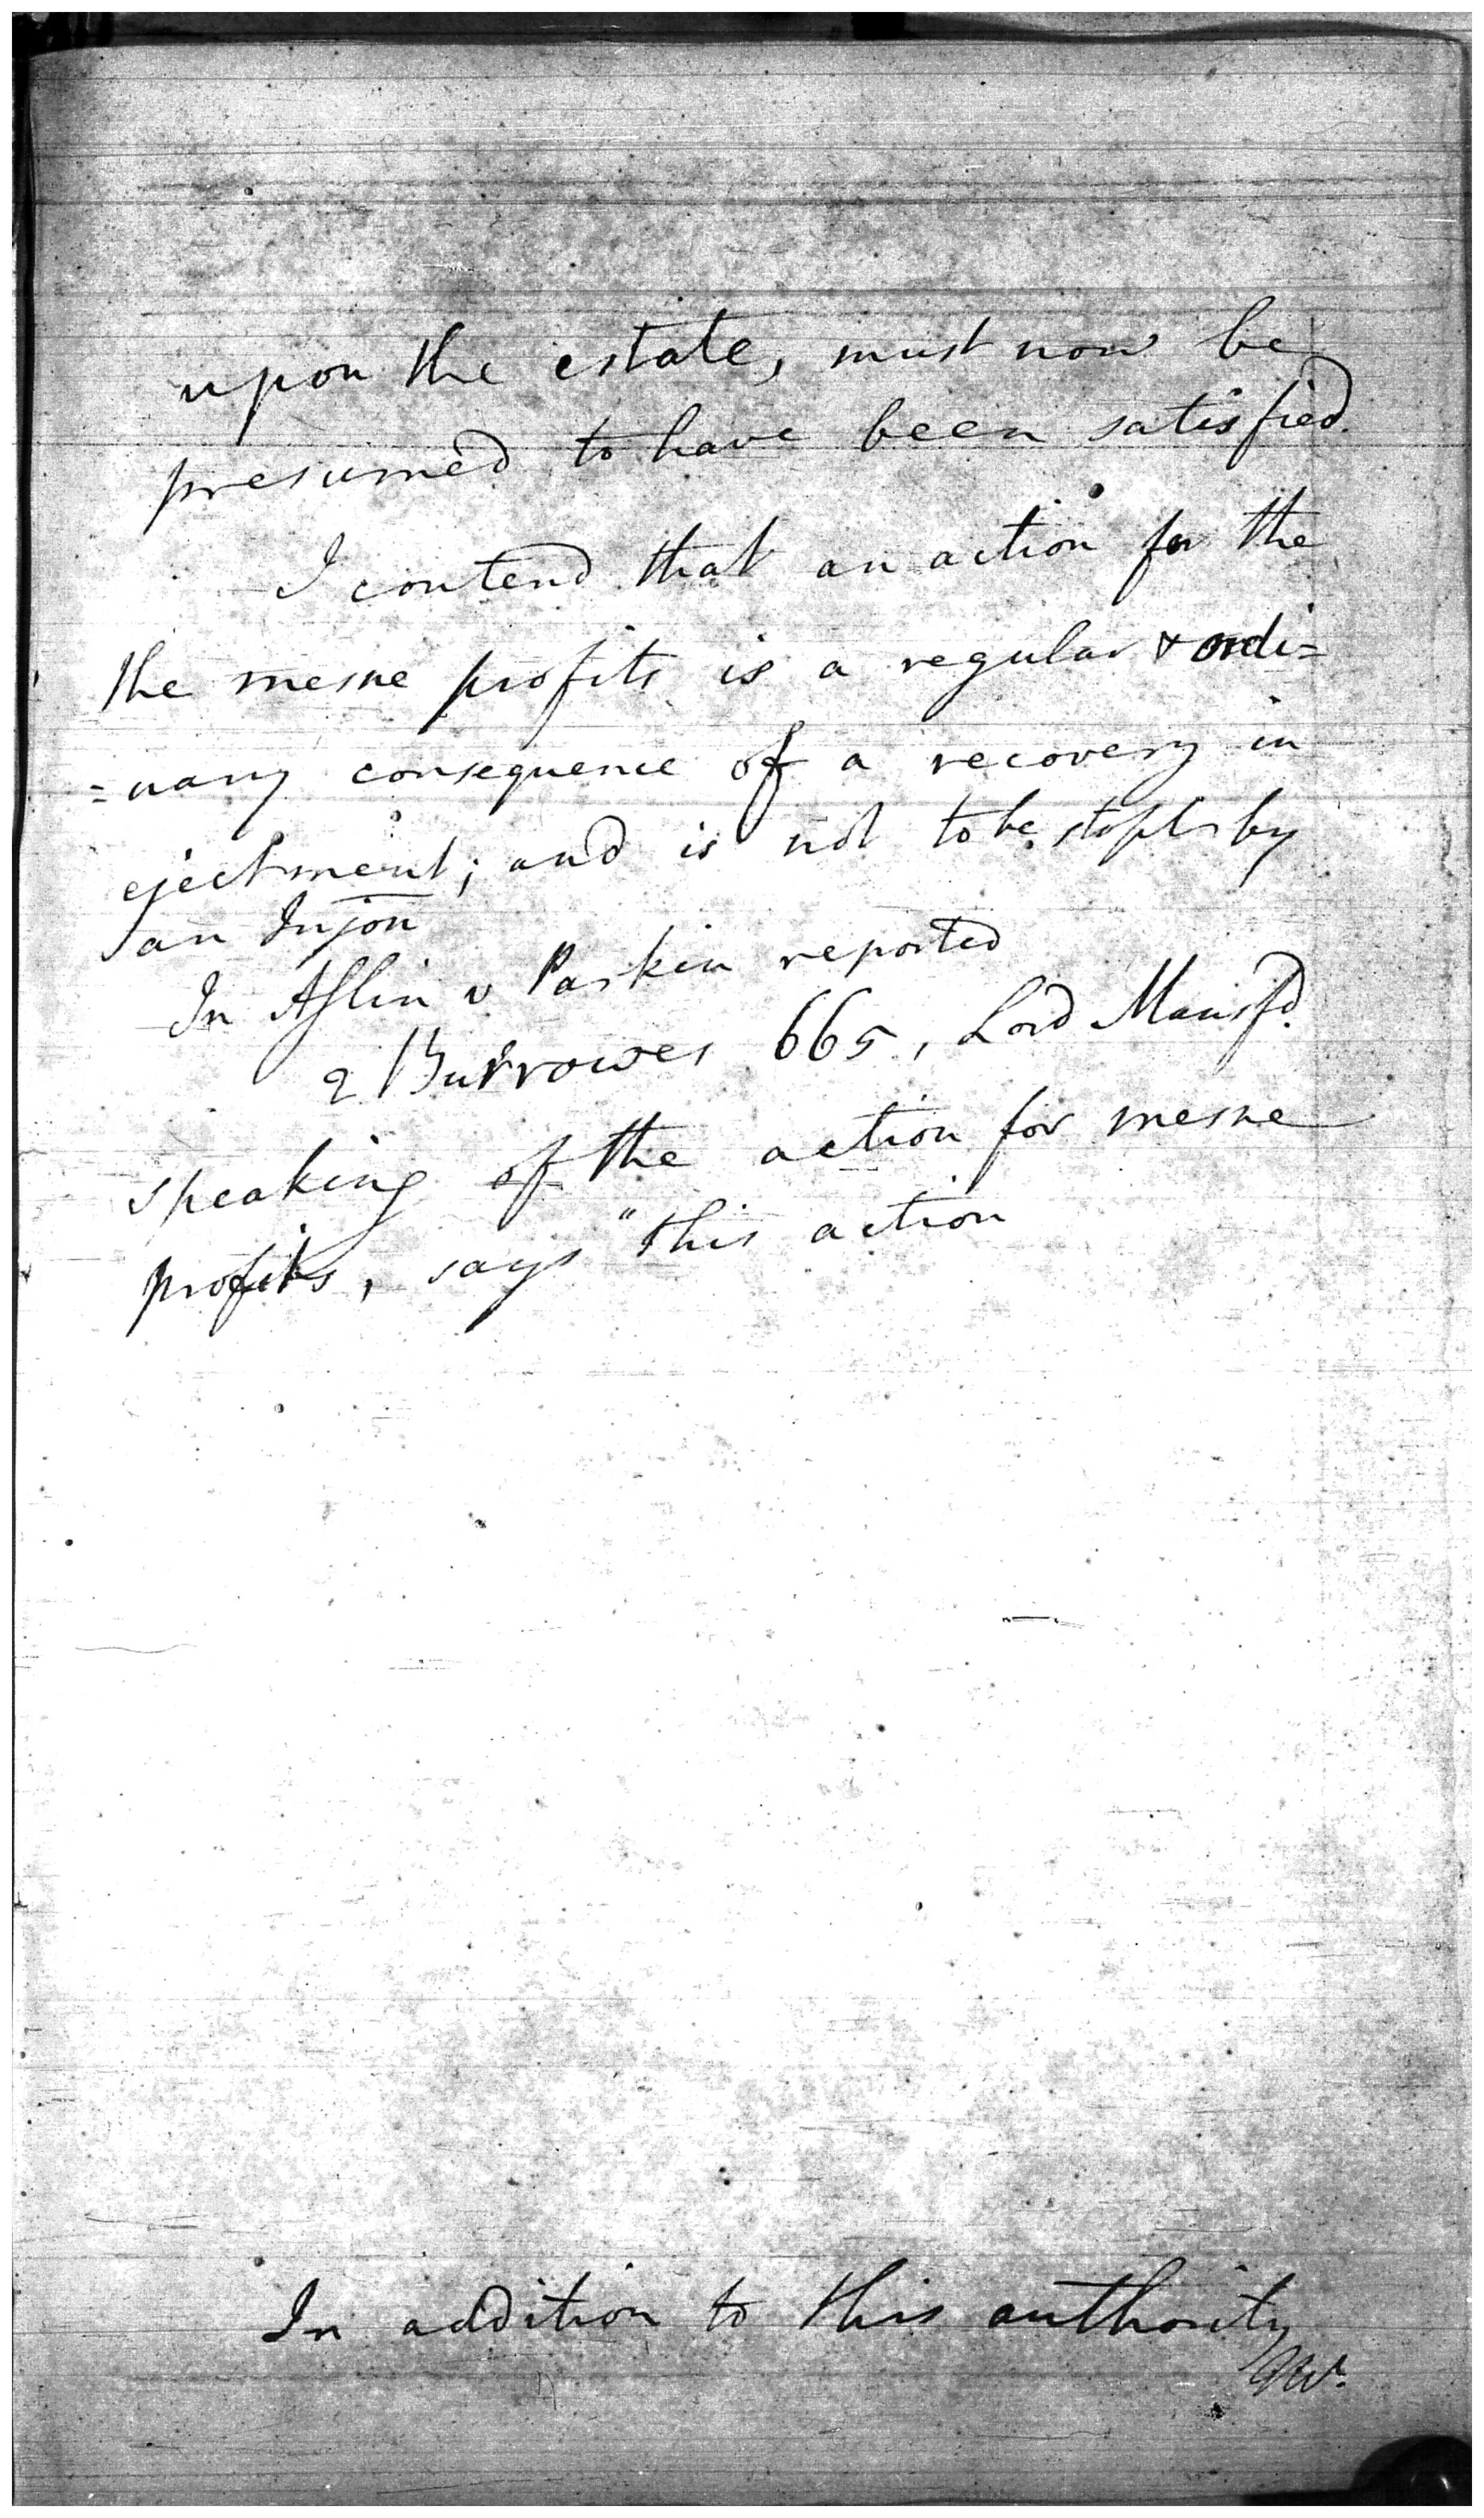 upon the estate, must now be
presumed to have been satisfied.
I contend that an action for the
the mesne profits is a regular & ordi=
=nary consequence of a recovery in
ejectment; and is not to be stopt by
an Injon
In Aslin v Parkin reported
2 Burrowes 665, Lord Mansfd.
speaking of the action for mesne
profits, says "this action
In addition to this authority